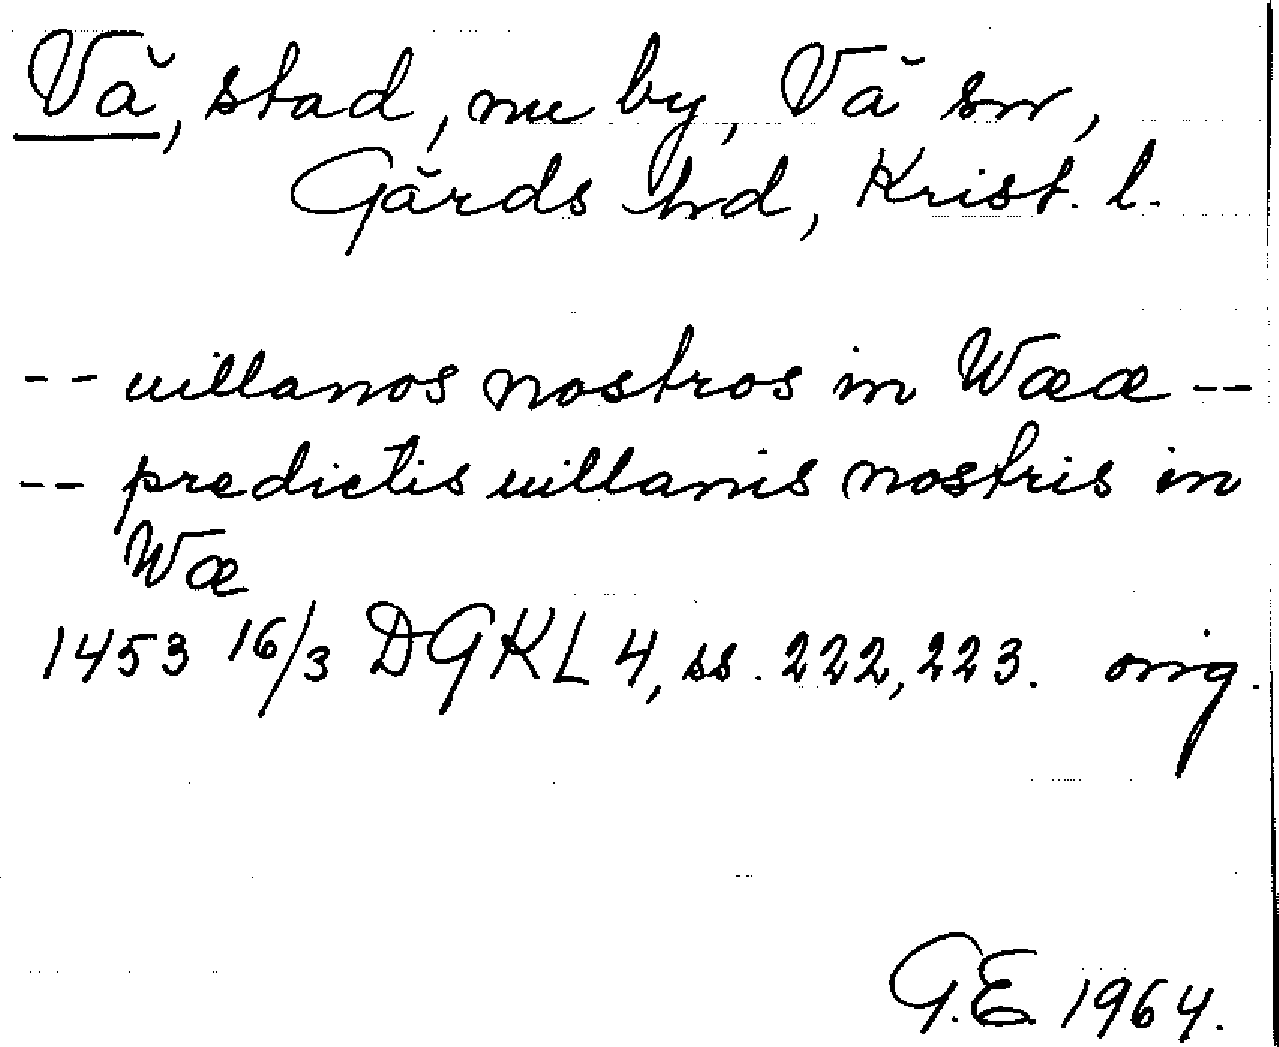 Vä, stad, nu by, Vä sn,
Gärds hd, Krist. l.
-- uillanos nostros in Wææ --
-- predictis uillanis nostris in
Wæ
1453 16/3 DGKL 4, ss. 222, 223. orig.
G.E. 1964.